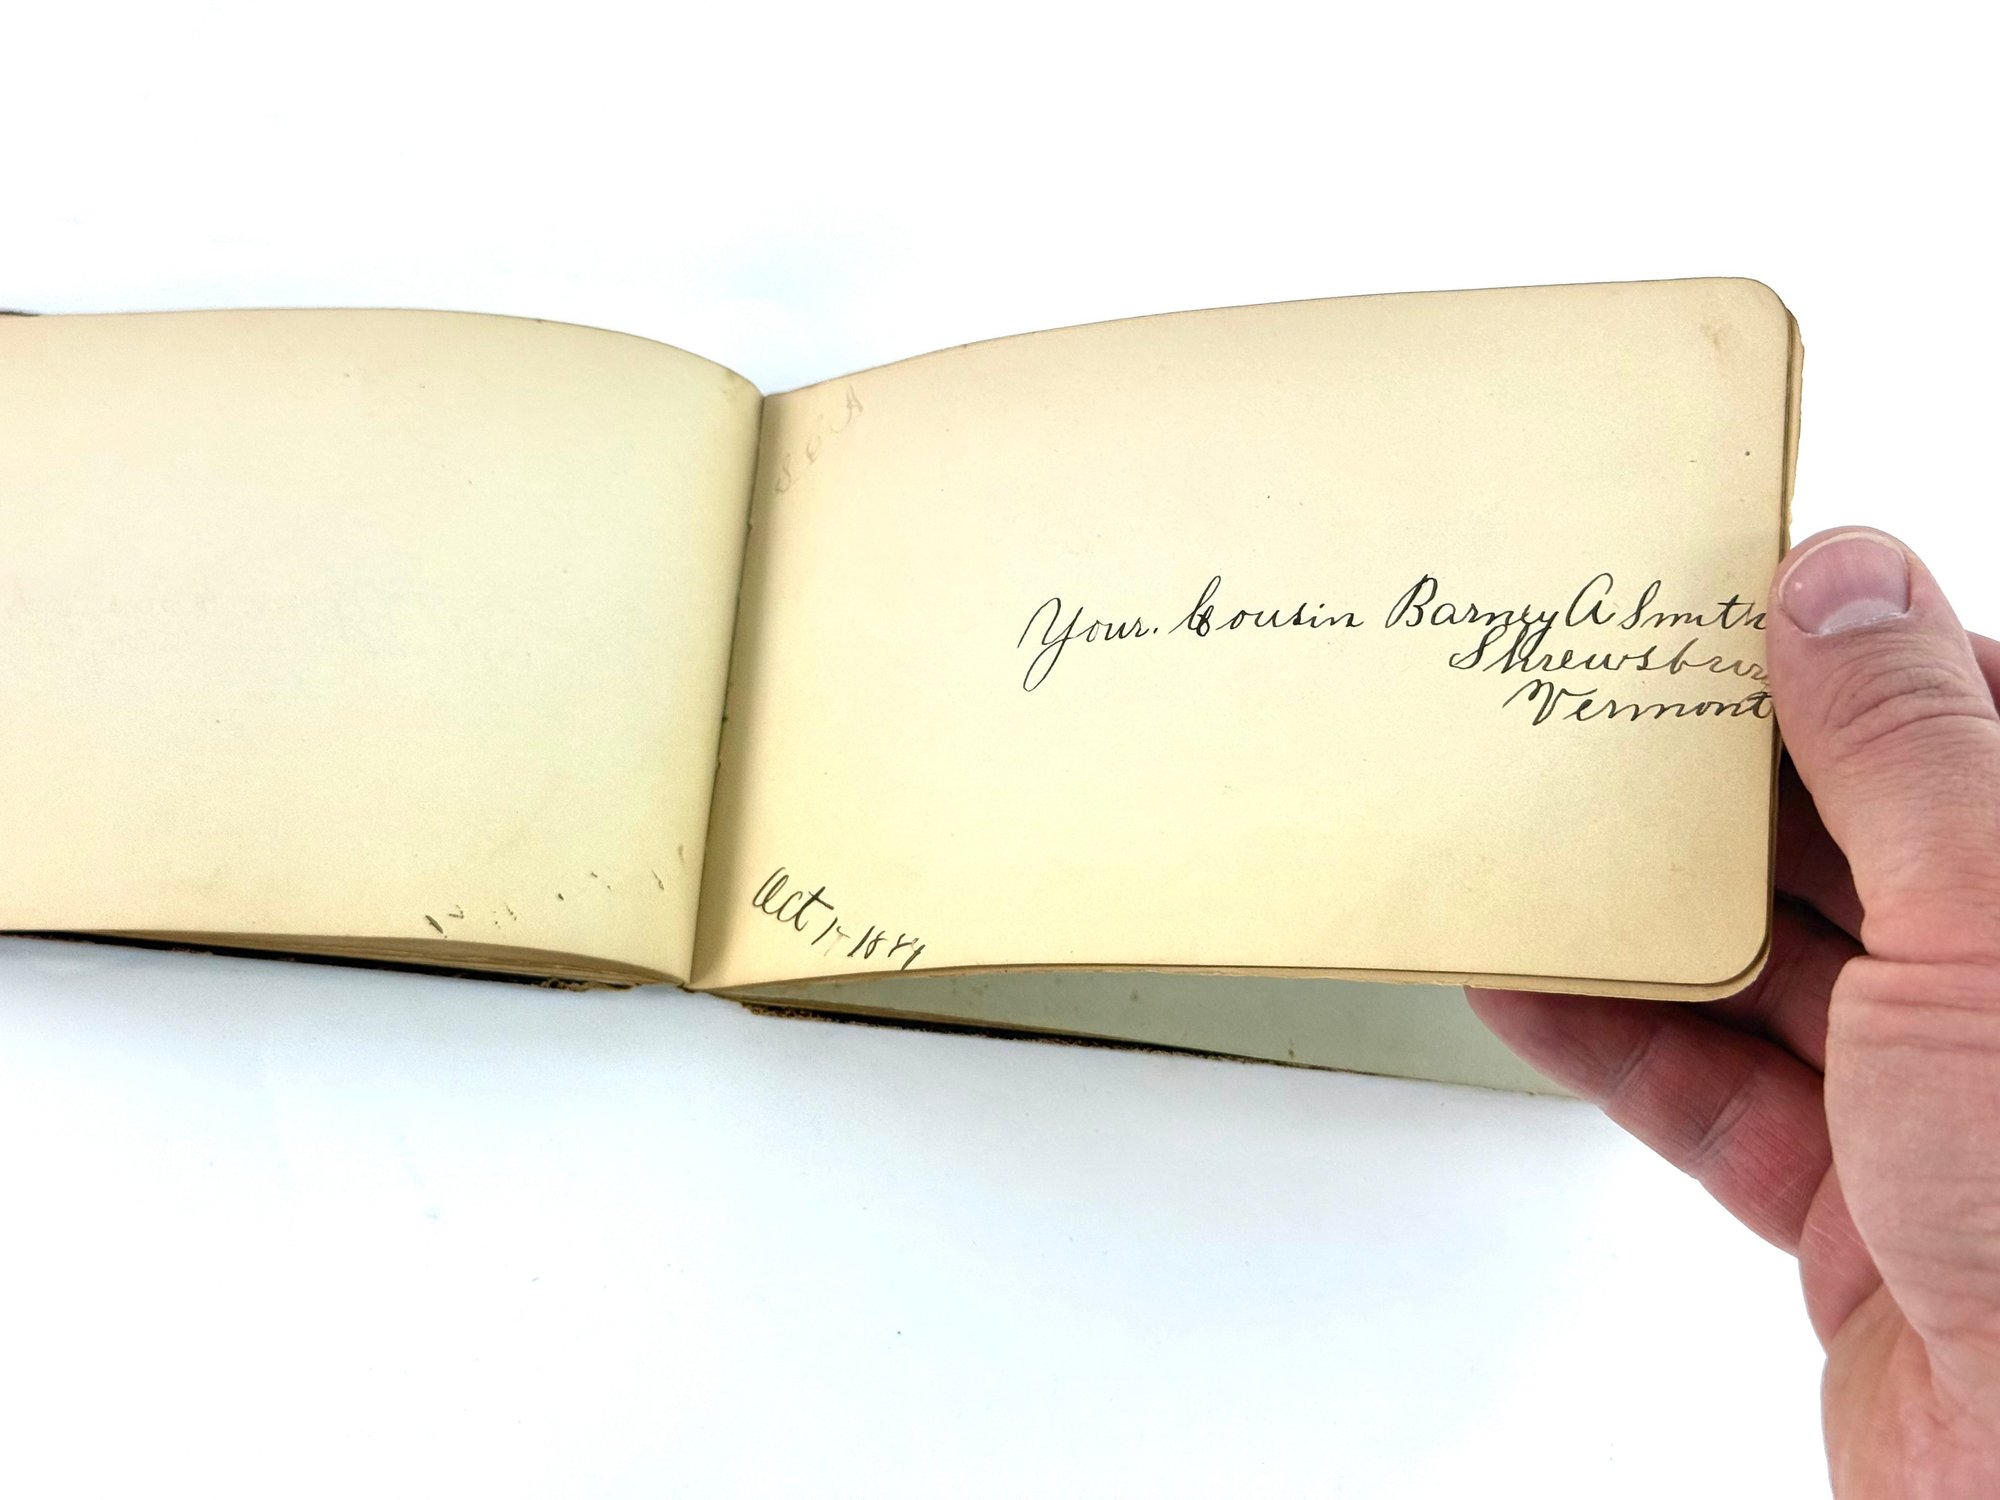 Your. Cousin Barney A Smith
Shrewsbury
Vermont
Oct 17 1884